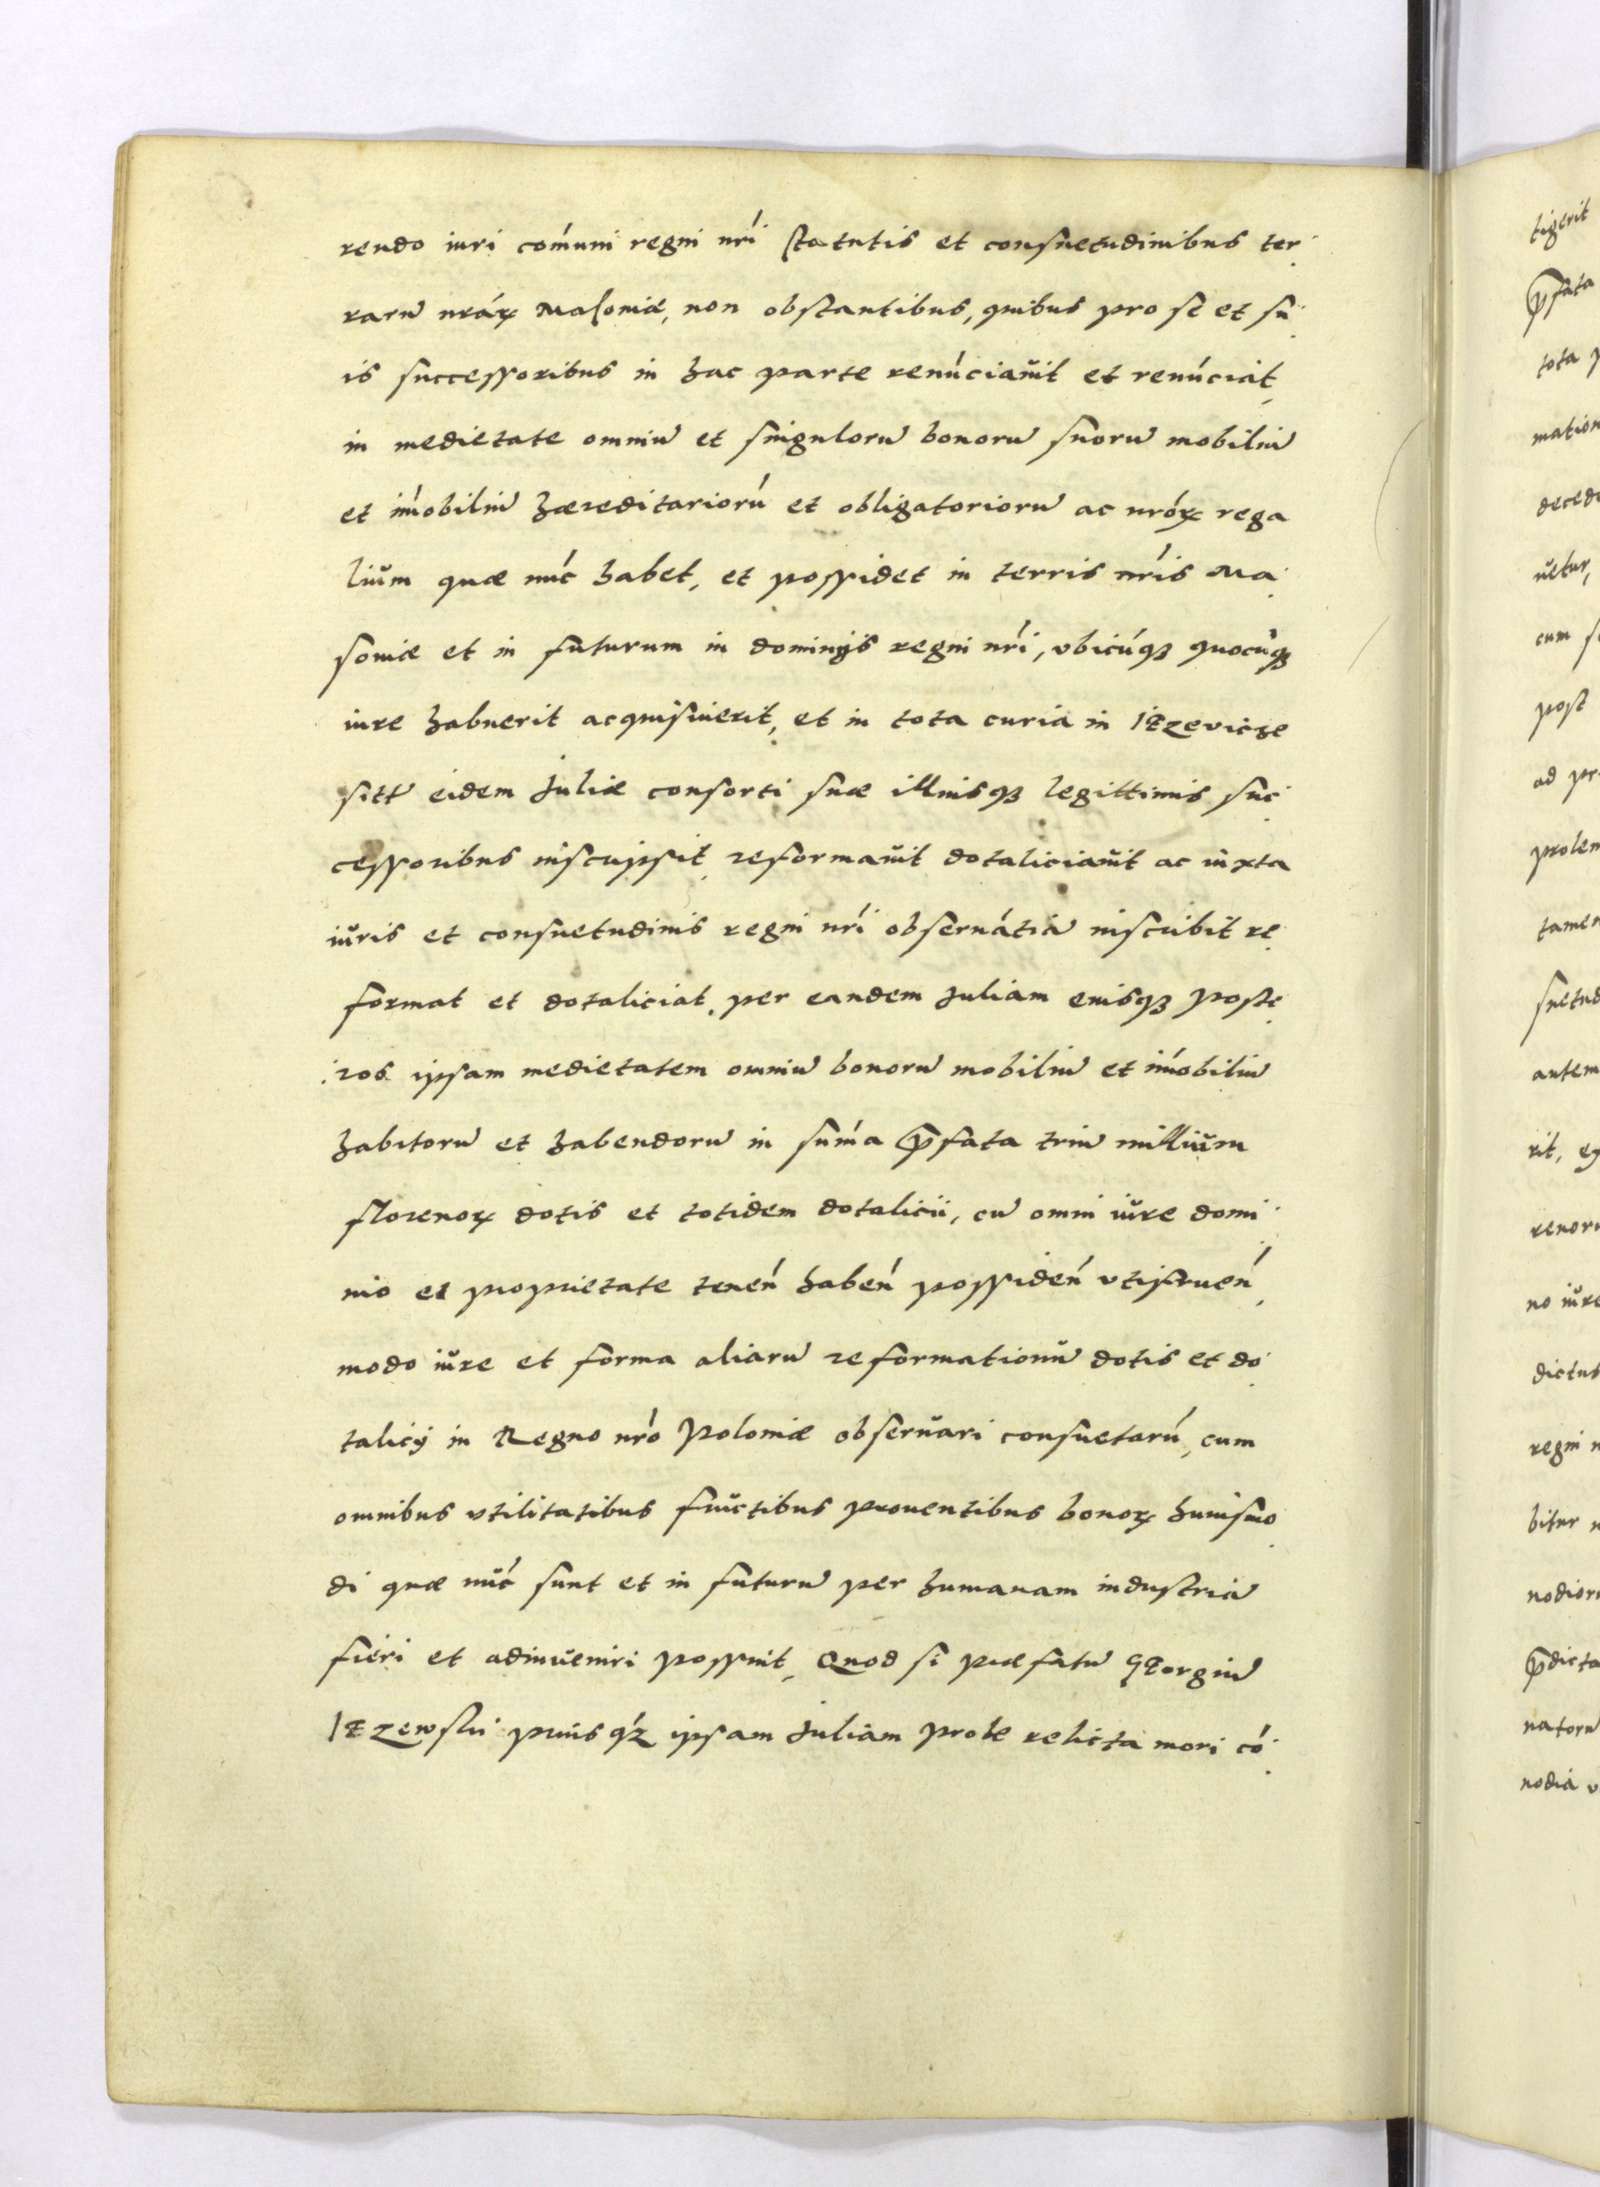 rendo iuri com̃uni regni nrĩ statutis et consuetudinibus ter
rarũ nrãrꝝ Masoniæ, non obstantibus, quibus pro se et su
is successoribus in hac parte renũciauit et renũciat,
in medietate omniũ et singulorũ bonorũ suorũ mobiliũ
et im̃obiliũ hæreditariorũ et obligatoriorũ ac nrõrꝝ rega
lium quæ nũc habet, et possidet in terris nrĩs Ma
soniæ et in futurum in dominijs regni nrĩ, vbicũqꝫ quocũqꝫ
iure habuerit acquisiuerit, et in tota curia in IEzevicze
sitt̃ eidem Juliæ consorti suæ illiusqꝫ legittimis suc
cessoribus inscripsit, reformauit dotaliciauit ac iuxta
iuris et consuetudinis regni nrĩ obseruãtiã inscribit re
format et dotaliciat, per eandem Juliam eiusqꝫ poste
ros ipsam medietatem omniũ bonorũ mobiliũ et im̃obiliũ
habitorũ et habendorũ in sum̃a p̃fata triũ millium
florenorꝝ dotis et totidem dotalicii, cũ omni iure domi
nio et proprietate tenẽn habẽn possidẽn vtifruẽn,
modo iure et forma aliarũ reformationũ dotis et do
talicij in Regno nrõ Poloniæ obseruari consuetarũ, cum
omnibus vtilitatibus fructibus prouentibus bonorꝝ huiusmo
di quæ nũc sunt et in futurũ per humanam industriã
fieri et adinueniri possunt, Quod si præfatũ GEorgiũ
IEzewski priusqꝫ ipsam Juliam prole relicta mori cõ

tigerit
p̃fata
tota
decede
uetur,
cum
post
ad
prolem
tamen
autem
rit,
no iure
dictus
regni
bitur
p̃dicta
natorũ
nodia